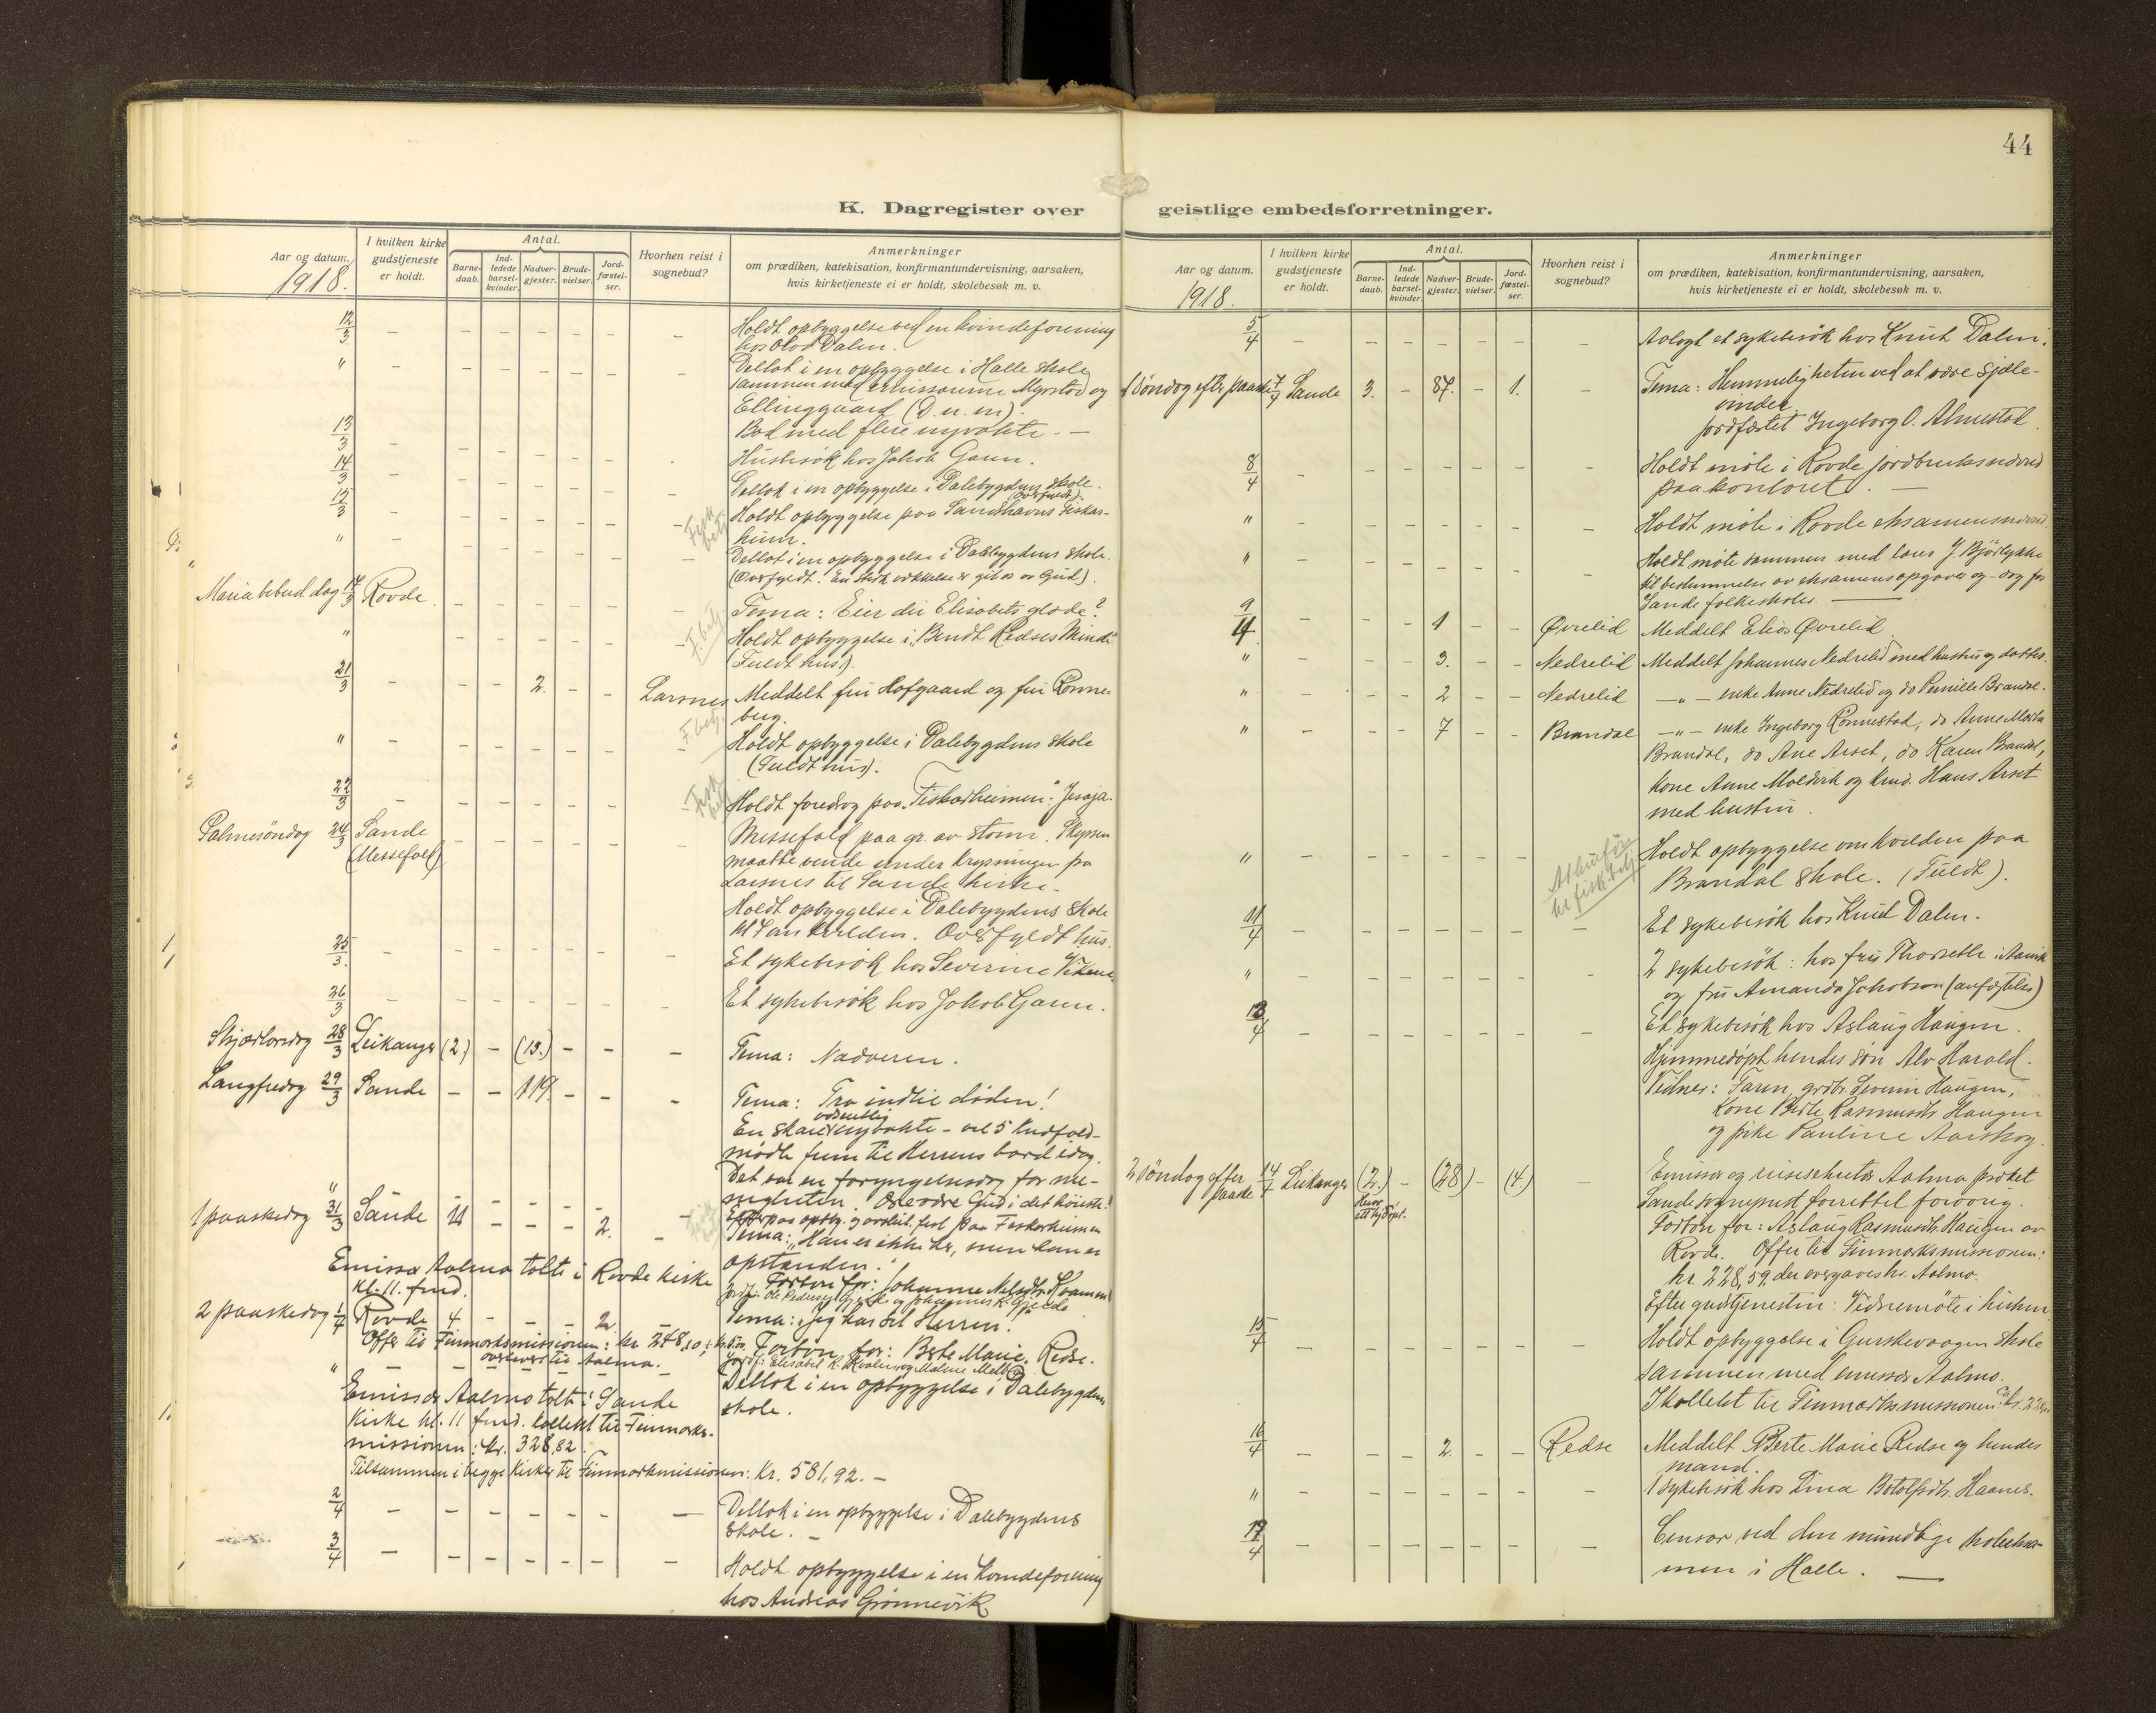 44
K. Dagregister over
Aar og datum.
1918.
I hvilken kirke
gudstjeneste
er holdt.
Antal.
Barne-
daab.
Ind-
ledede
barsel-
kvinder.
Nadver-
gjester.
Brude-
vielser.
Jord-
fæstel-
ser.
Hvorhen reist i
sognebud?
Anmerkninger
om prædiken, katekisation, konfirmantundervisning, aarsaken,
hvis kirketjeneste ei er holdt, skolebesøk m. v.
12/3 – – – – – – – Holdt opbyggelse ved en kvindeforening
hos Dalen.
" – – – – – – – Deltok i en opbyggelse i Halle skole
sammen med emissærerne Myrstad og
Ellinggaard (D. u. m).
Bad med flere nyvakte. –
13/3 – – – – – – Husbesøk hos Jakob Garen.
14/3 – – – – – – – Deltok i en opbyggelse i Dalebygdens skole.
15/3 – – – – – – – Holdt opbyggelse paa Sandshavns Fiskar-
heim.
" – – – – – – Deltok i en opbyggelse i Dalebygdens skole.
(Overfyldt. En sterk vækkelse er git os av Gud).
Maria bebud. dag 17/3 Rovde – – – – – – Tema: Eier du Elisabets glæde?
" – Holdt opbyggelse i "Bendt Redses Minde"
(Fuldt hus).
21/3 – – – 2. – – Larsnes Meddelt fru Hofgaard og fru Rønne-
berg.
F. bet.
" – – – – – – – Holdt opbyggelse i Dalebygdens skole
(Fuldt hus).
22/3 – Holdt foredrag paa "Fiskarheimen": Jesaja.
Palmesöndag 24/3 Sande – – – – – – Messefald paa gr. av storm. Skyssen
(Messefald) maatte vende under krysningen fra
Larsnes til Sande kirke.
Holdt opbyggelse i Dalebygdens skole
kl. om kvelden. Overfyldt hus.
25/3. – – – – – – – Et sykebesøk hos Severine
26/3 – – – – – – – Et sykebesøk hos Jakob Garen.
Skjærtorsdag 28/3 Leikanger (2) – (13.) – – – Tema: Nadveren.
Langfredag 29/3 Sande – – 119. – – – Tema: Tro indtil döden!
En skare nyvakte – vel 5
frem til Herrens bord idag.
Det var en foryngelsesdag for me-
nigheten. Ære være Gud i det höieste!
1 paaskedag 31/3 Sande 11 – – – 2. – Tema: "Han er ikke her, men han er
opstanden."
Emissær Aalmo talte i Rovde kirke Forbøn for: Johanne
kl. 11. fmd.
2 paaskedag 1/4 Rovde 4 – – – 2 Tema: "Jeg har set Herren".
Offer til Finmarksmissionen: kr. 248,10 Forbøn for: Berte Marie Redse.
overlevert til Aalmo.
" – – – – – – – Deltok i en opbyggelse i Dalebygdens
skole.
Emissær Aalmo talte i Sande
kirke kl. 11 fmd. Kollekt til Finmarks-
missionen: kr. 328,82.
Tilsammen i begge kirker til Finmarkmissionen: Kr. 581,92. –
2/4 – – – – – – – Deltok i en opbyggelse i Dalebygdens
skole. –
3/4 – – – – – – – Holdt opbyggelse i en kvindeforening
hos Andreas Grönnevik
geistlige embedsforretninger.
Aar og datum.
1918.
I hvilken kirke
gudstjeneste
er holdt.
Antal.
Barne-
daab.
Ind-
ledede
barsel-
kvinder.
Nadver-
gjester.
Brude-
vielser.
Jord-
fæstel-
ser.
Hvorhen reist i
sognebud?
Anmerkninger
om prædiken, katekisation, konfirmantundervisning, aarsaken,
hvis kirketjeneste ei er holdt, skolebesøk m. v.
5/4 – – – – – – – Avlagt et sykebesök hos Knut Dalen.
1 söndag efter paaske 7/4 Sande 3. – 87. – 1. – Tema: Hemmeligheten ved at være sjæle-
vinder.
Jordfæstet Ingeborg O. Almestad.
8/4 – – – – – – – Holdt möte i Rovde jordbruksnævnd
paa kontoret. –
" – – – – – – – Holdt möte i Rovde eksamensnævnd.
" – Holdt möte sammen med lærer J. Bjørlykke
til bestemmelse av eksamensopgaver og -dag for
Sande folkeskoler.
9/4 – – – 1 – – Øvrelid Meddelt Elias Øvrelid.
" – – 3. – – Nedrelid Meddelt Johannes Nedrelid med hustru og datter.
" – – – 2 – – Nedrelid –"– enke Anne Nedrelid og do Pernille Brandal.
" – – – 7 – – Brandal –"– enke Ingeborg Rönnestad, do Anne Marta
Brandal, do Ane Arset, do Karen Brandal,
kone Anne Moldvik og kmd. Hans Arset
med hustru.
" – – – – – – Holdt opbyggelse om kvelden paa
Brandal skole. (Fuldt).
11/4 – – – – – – – Et sykebesök hos Knut Dalen.
" – – – – – – – 2 sykebesök: hos fru Thorsetle i Aarvik
og fru Amanda Jakobson (anfægtelse)
13/4 – – – – – – – Et sykebesök hos Aslaug Haugen.
Hjemmedöpt hendes sön Alv Harald.
Vidner: Faren, grdbr. Severin Haugen,
kone Berte Rasmusdtr. Haugen
og pike Pauline Aarskog.
2 söndag efter paaske 14/4 Leikanger (2.) – (28) – (4.) – Emissær og reisesekretær Aalmo præket
Sandesogneprest forrettet forövrig.
Forbön for: Aslaug Rasmusdtr. Haugen av
Rovde. Offer til Finmarksmissionen:
kr. 228,59. der overgaves hr. Aalmo.
Efter gudstjenesten: Vidnemöte i kirken
15/4 – – – – – – – Holdt opbyggelse i Gurskevaagen skole
sammen med emissær Aalmo.
I kollekt til Finmarksmissionen:
16/4 – – – 2. – – Redse Meddelt Berte Marie Redse og hendes
mand.
" – – – – – – – 1 sykebesök hos Lina Botolfsdtr. Haanes.
19/4 – – – – – – – Censor ved den mundtlige skoleeksa-
men i Halle. –